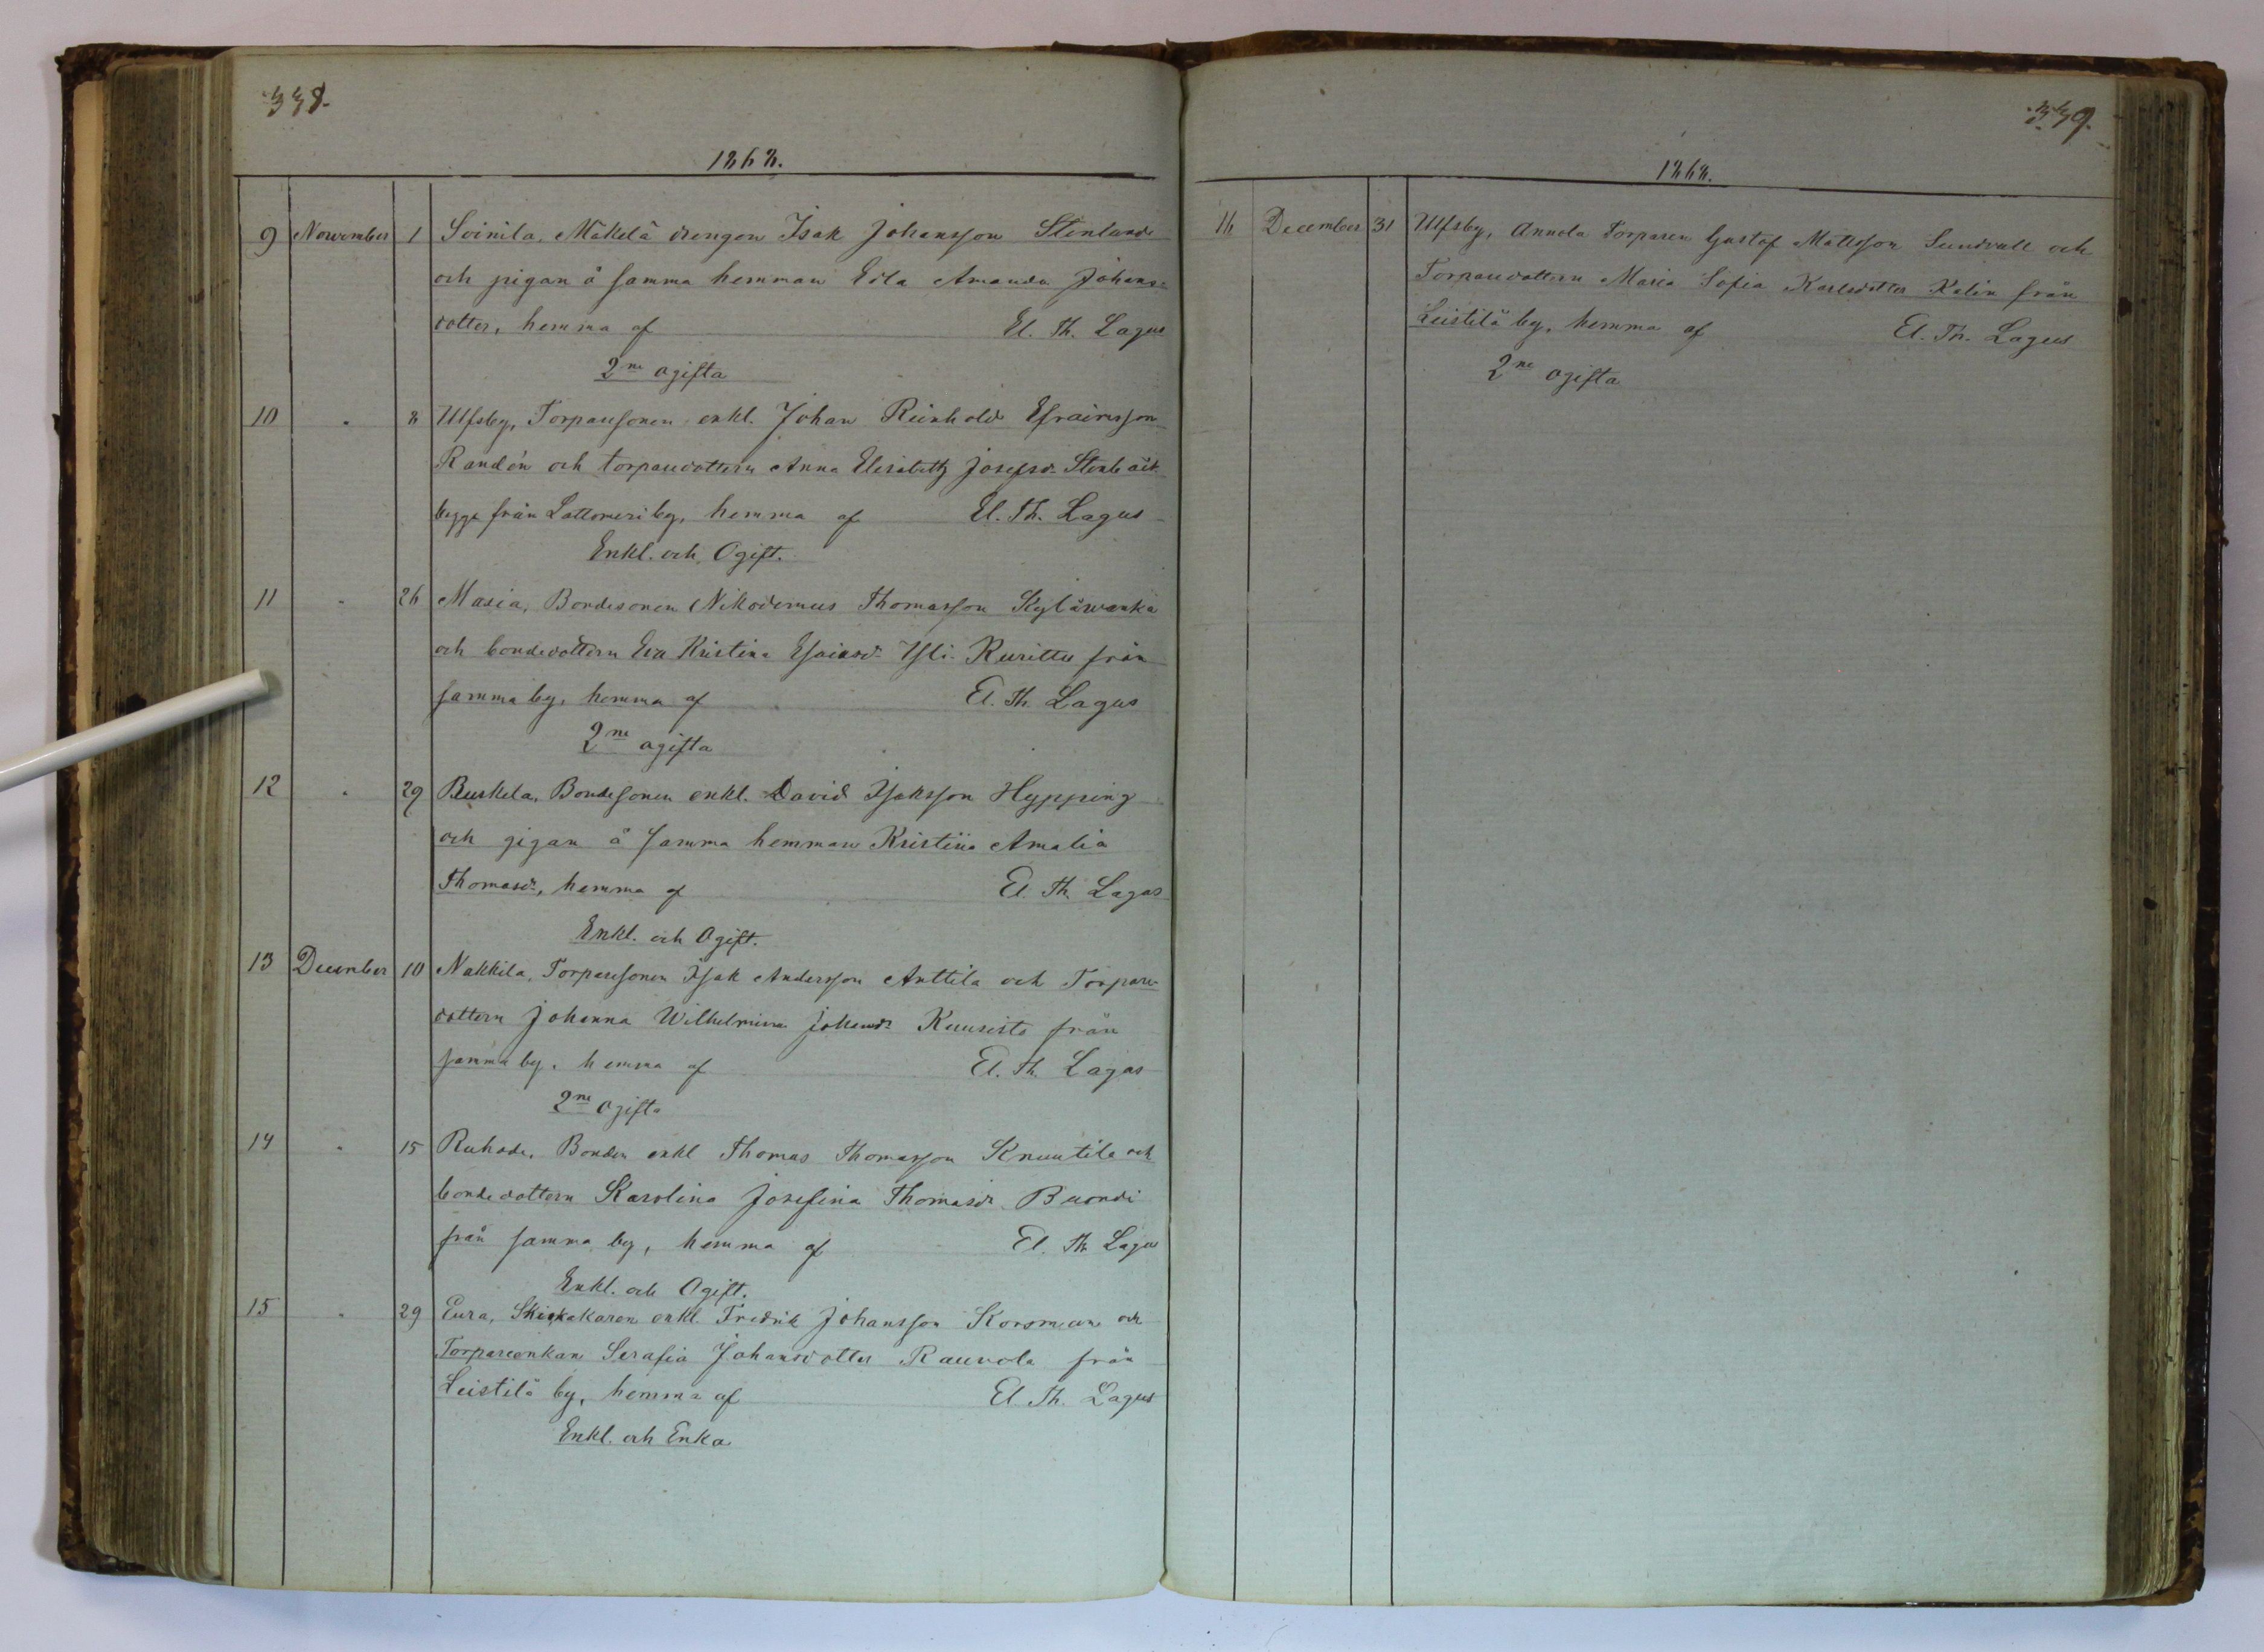 338.
1868.
9 November 1 Soinila, Mäkelä drengen Isak Johansson Stenlund
och pigan å samma hemman Eda Amanda Johans-
dotter, hemma af El. Th. Lagus
2ne ogifta
10 " 8 Ulfsby, Torparesonen enkl. Johan Reinhold Efraimsson
Randén och torparedottern Anna Elisabeth Josefsdr Stenbäck
begge från Lattomeri by, hemma af El. Th. Lagus
Enkl. och Ogift.
11 " 26 Masia, Bondesonen Nikodemus Thomasson Kyläwanka
och bondedottern Eva Kristina Esaiasdr Yli-Kurittu från
samma by, hemma af El. Th. Lagus
2ne ogifta
12 " 29 Ruskila, Bondesonen enkl. David Isaksson Hypping
och pigan å samma hemman Kristina Amalia
Thomasdr, hemma af El. Th. Lagus
Enkl. och Ogift.
13 December 10 Nakkila, Torparesonen Isak Andersson Anttila och Torpare-
dottern Johanna Wilhelmina Johansdr Kuusisto från
samma by, hemma af El. Th. Lagus
2ne ogifta
14 " 15 Ruhade, Bonden enkl Thomas Thomasson Knuutila och
bondedottern Karolina Josefina Thomasdr Buordi
från samma by, hemma af El. Th. Lagus
Enkl. och Ogift.
15 " 29 Eura, enkl. Fredrik Johansson Korsman och
Torpareenkan Serafia Johansdotter Rauvola från
Leistilä by, hemma af El. Th. Lagus
Enkl. och Enka
339.
1868.
16 December 31 Ulfsby, Annola Torparen Gustaf Mattsson Sundvall och
Torparedottern Maria Sofia Karlsdotter Kalin från
Leistilä by, hemma af El. Th. Lagus
2ne ogifta